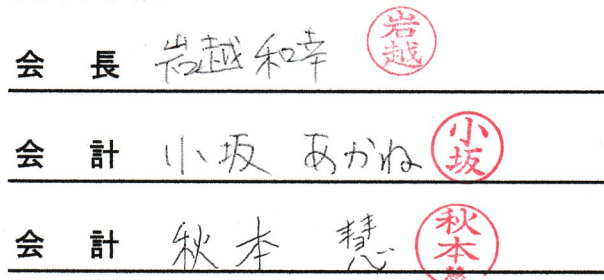 会長 岩越和幸 岩越
会計 小坂 あかね 小坂
会計 秋本 慧 秋本